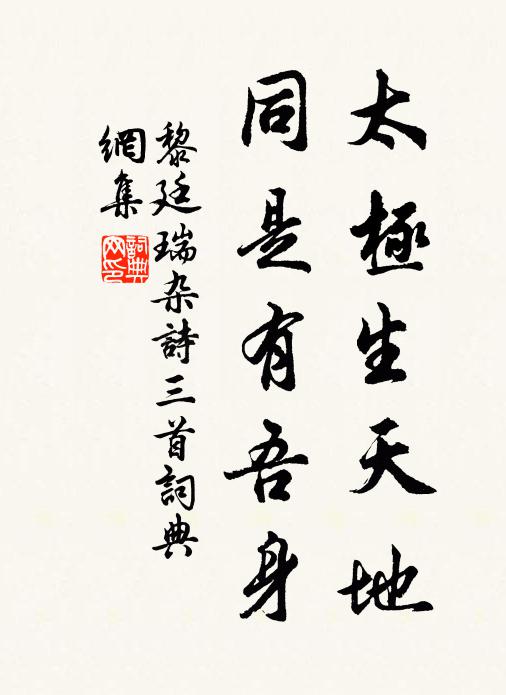 太極生天地
同是有吾身
黎廷瑞杂詩三首詞典
網集
詞典
网印